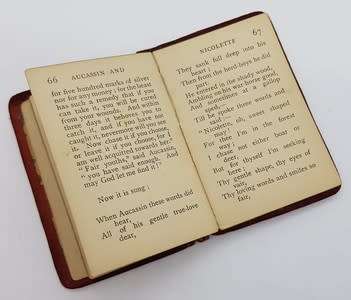 66 AUCASSIN AND
for five hundred marks of silver
nor for any money; for the beast
has such a remedy, that if you
can take it, you will be cured
from your wounds. And within
three days it behoves you to
catch it, and if you have not
caught it, nevermore will you see
it. Now chase it if you choose,
or leave it if you choose, for I
am well acquitted towards her."
"Fair youths," said Aucassin,
"you have said enough. And
may God let me find it!"
Now it is sung:
When Aucassin these words did
hear,
All of his gentle true-love
dear,
NICOLETTE 67
They sank full deep into his
heart;
Then from the herd-boys he did
part,
He entered in the shady wood,
Ambling on his war-horse good,
And sometimes at a gallop
sped
Till he spoke three words and
said:
"Nicolette, oh, sweet shaped
may!
For thee I'm in the forest
way;
I chase not either boar or
deer,
But for thyself I'm seeking
here.
Thy gentle shape, thy eyes of
vair,
Thy loving words and smiles so
fair,